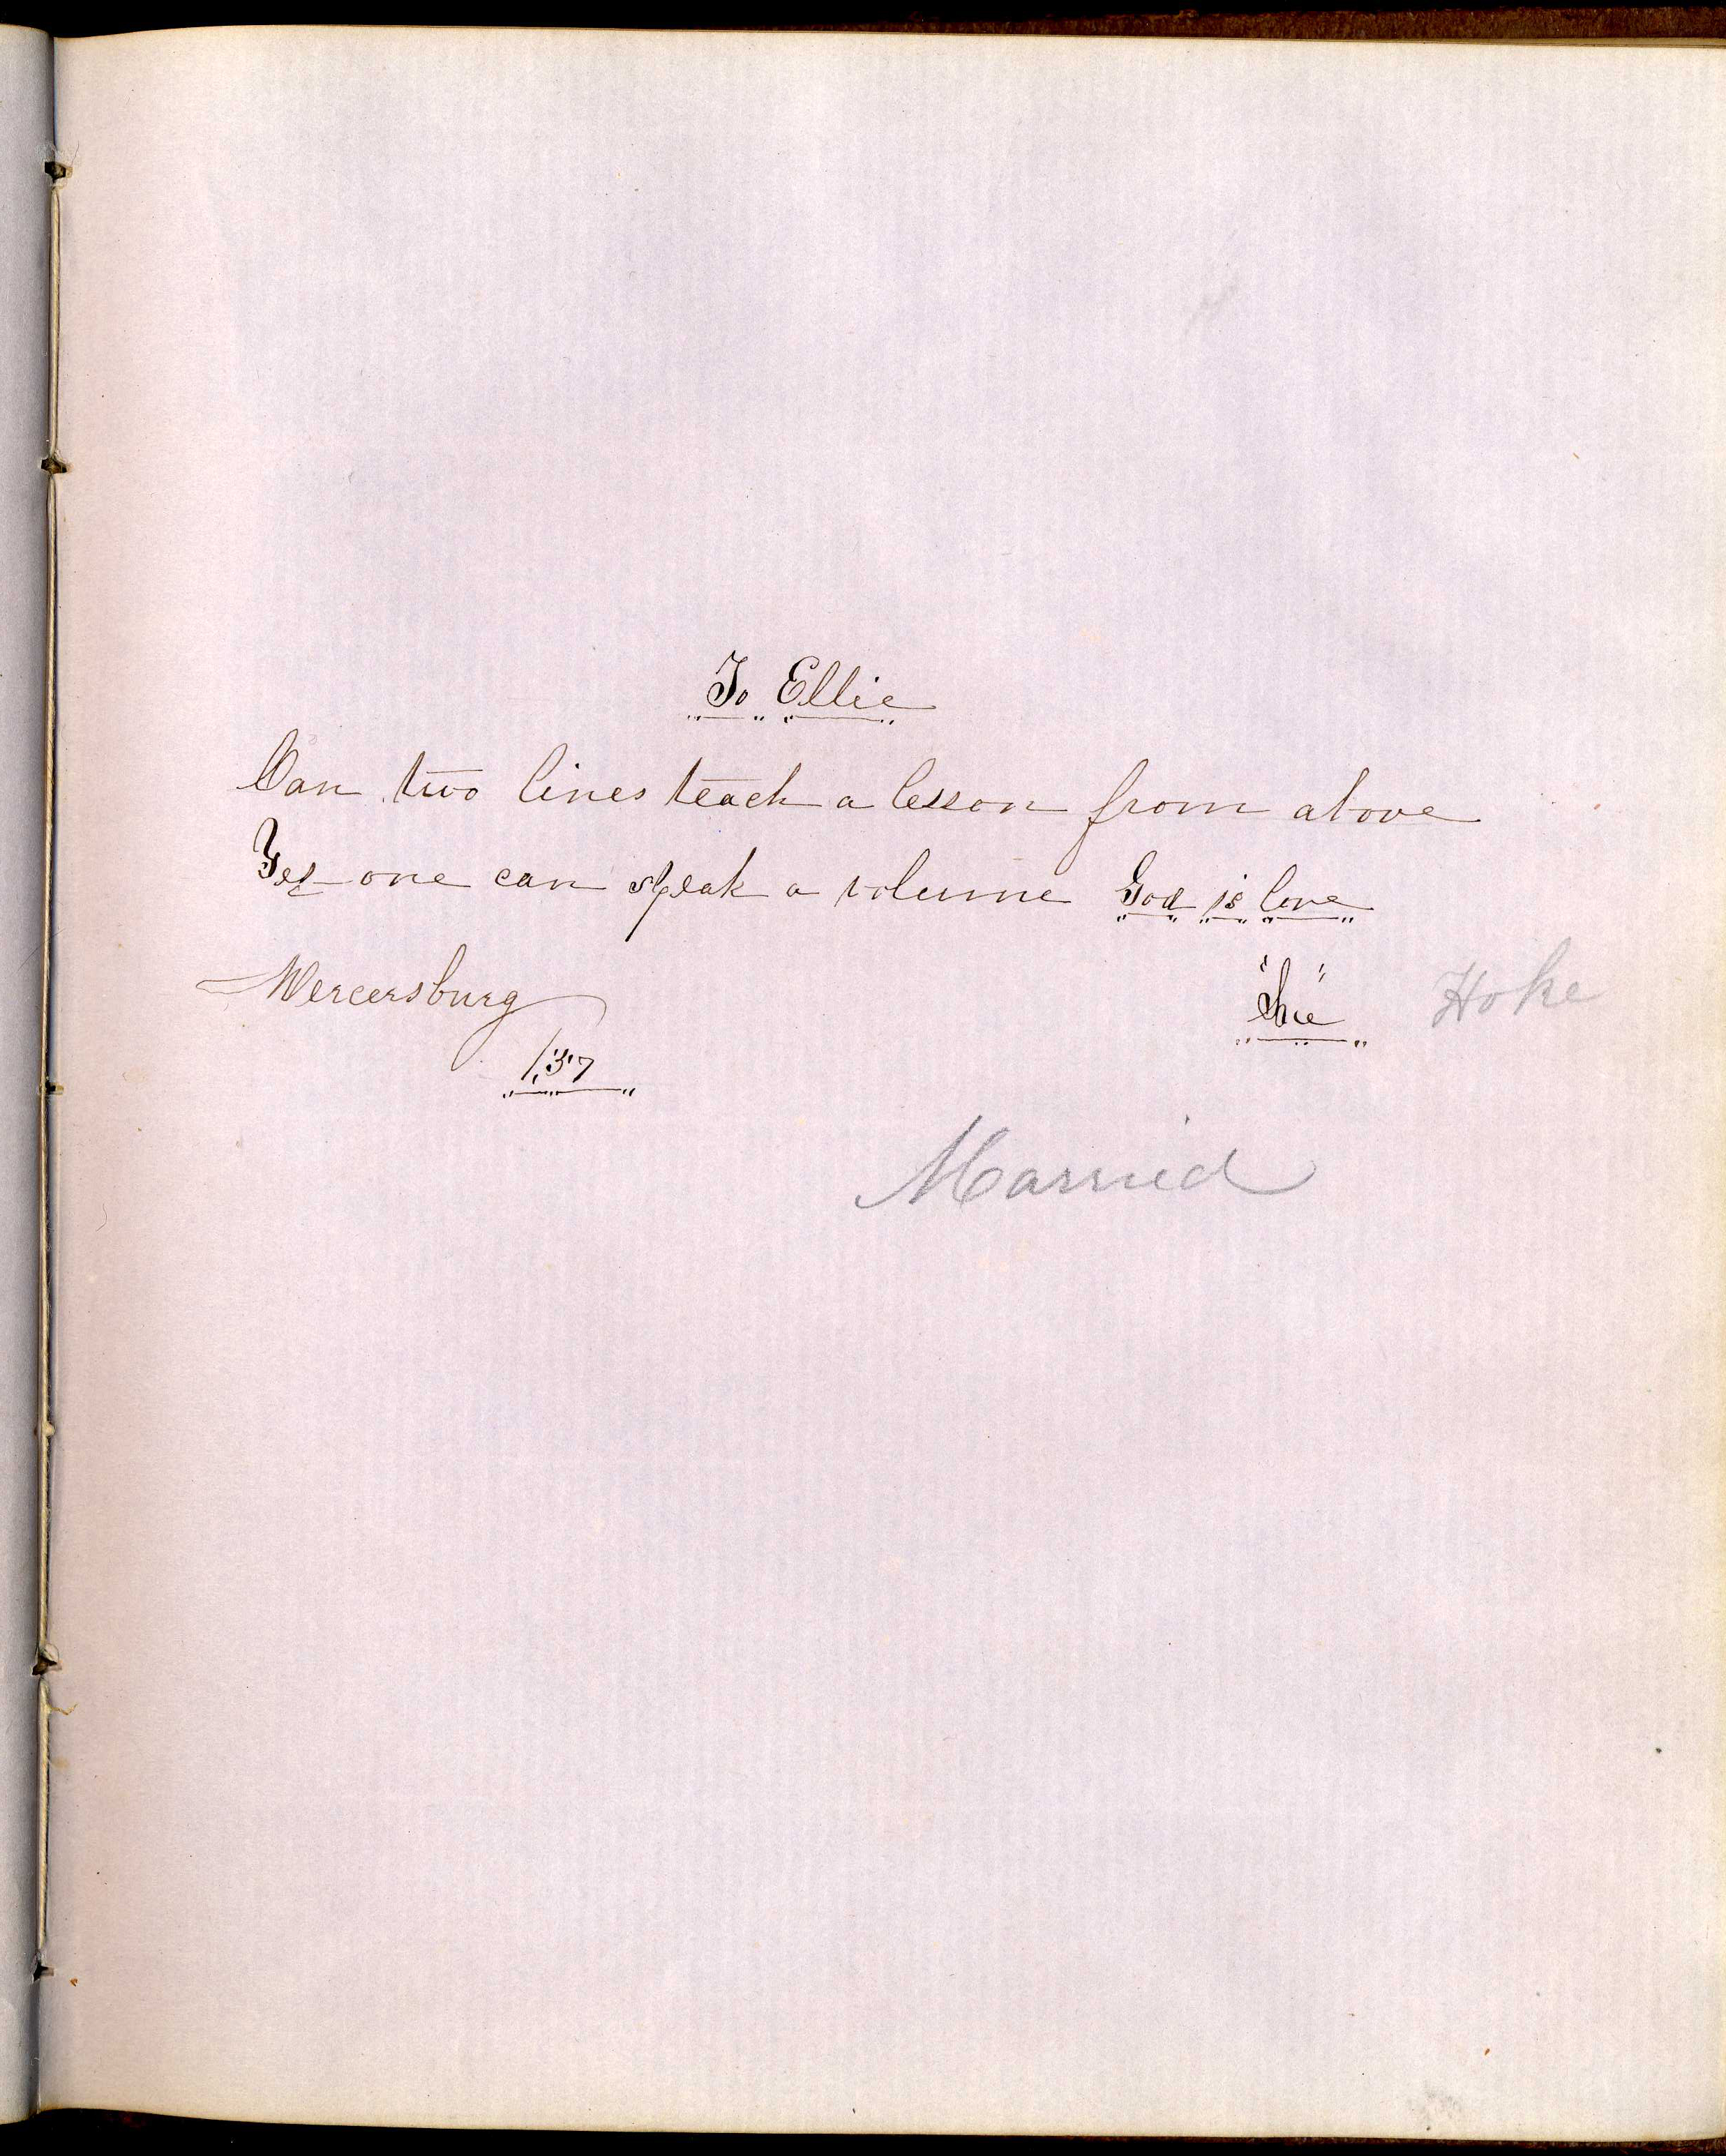 To Ellie
Can two lines teach a lesson from above
Yes one can speak a volume God is love
Mercersburg "Sue" Hoke
Married